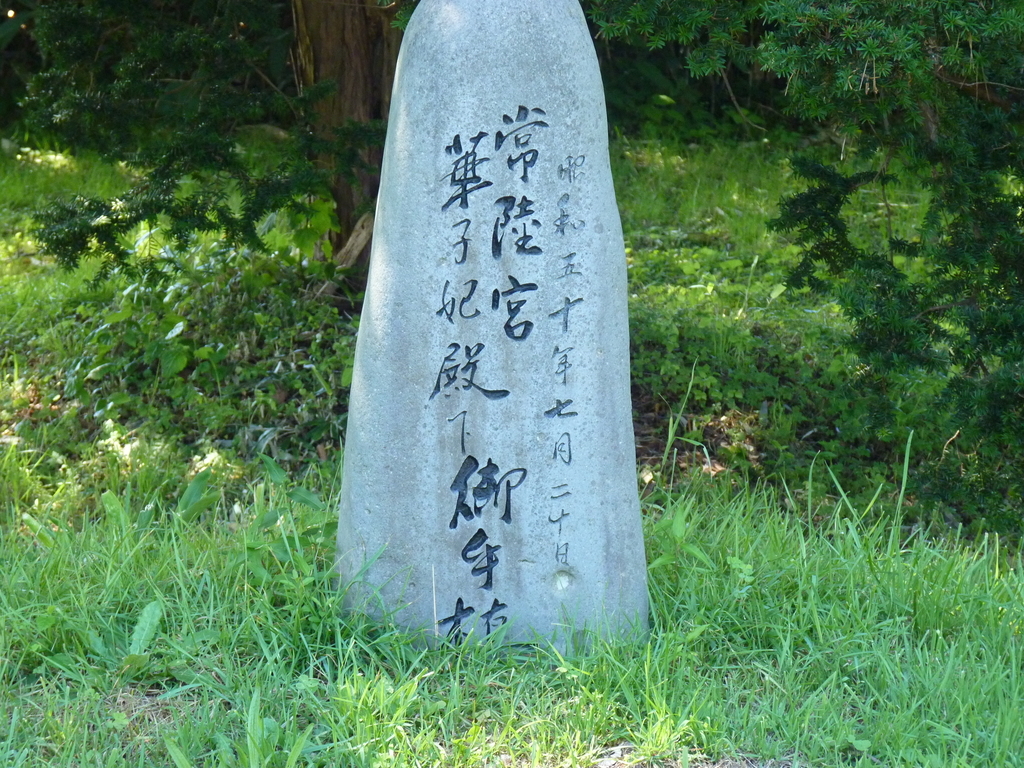 昭和五十年七月二十日
常陸宮
華子妃殿下御手植